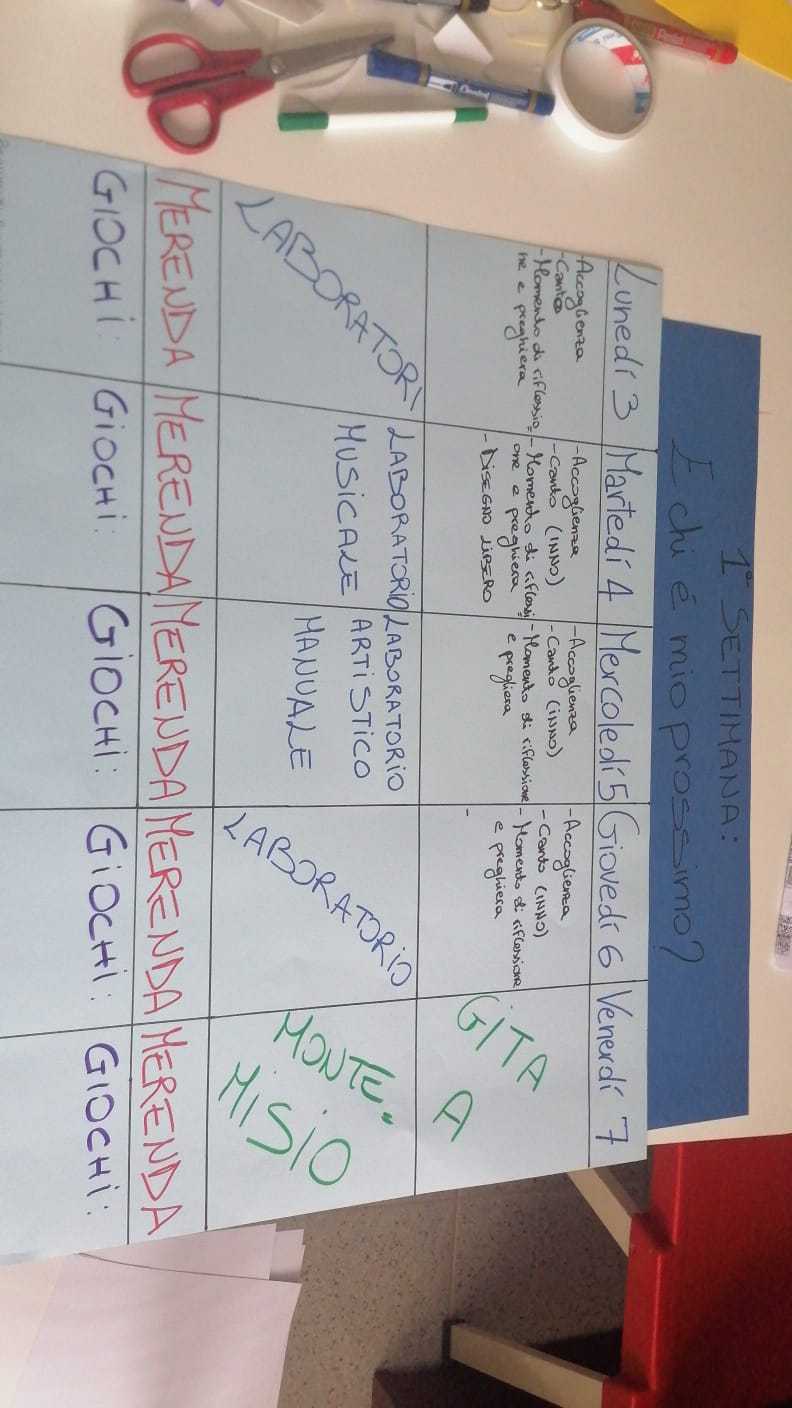 1ª SETTIMANA:
E chi é mio prossimo?
Lunedí 3
Martedí 4
Mercoledí 5
Giovedí 6
Venerdí 7
-Accoglienza
-Canto
-Momento di riflessio=
ne e preghiera
-Accoglienza
-Canto (INNO)
-Momento di riflessi=
one e preghiera
-DISEGNO LIBERO
-Accoglienza
-Canto (INNO)
-Momento di riflessione
e pregliera
-Accoglienza
-Canto (INNO)
-Momento di riflessione
e preghiera
-
GITA
A
MONTE-
MISIO
LABORATORI
LABORATORIO
MUSICALE
LABORATORIO
ARTISTICO
MANUALE
LABORATORIO
MERENDA
MERENDA
MERENDA
MERENDA
MERENDA
GIOCHI:
GIOCHI:
GIOCHI:
GIOCHI:
GIOCHI:
Pentel